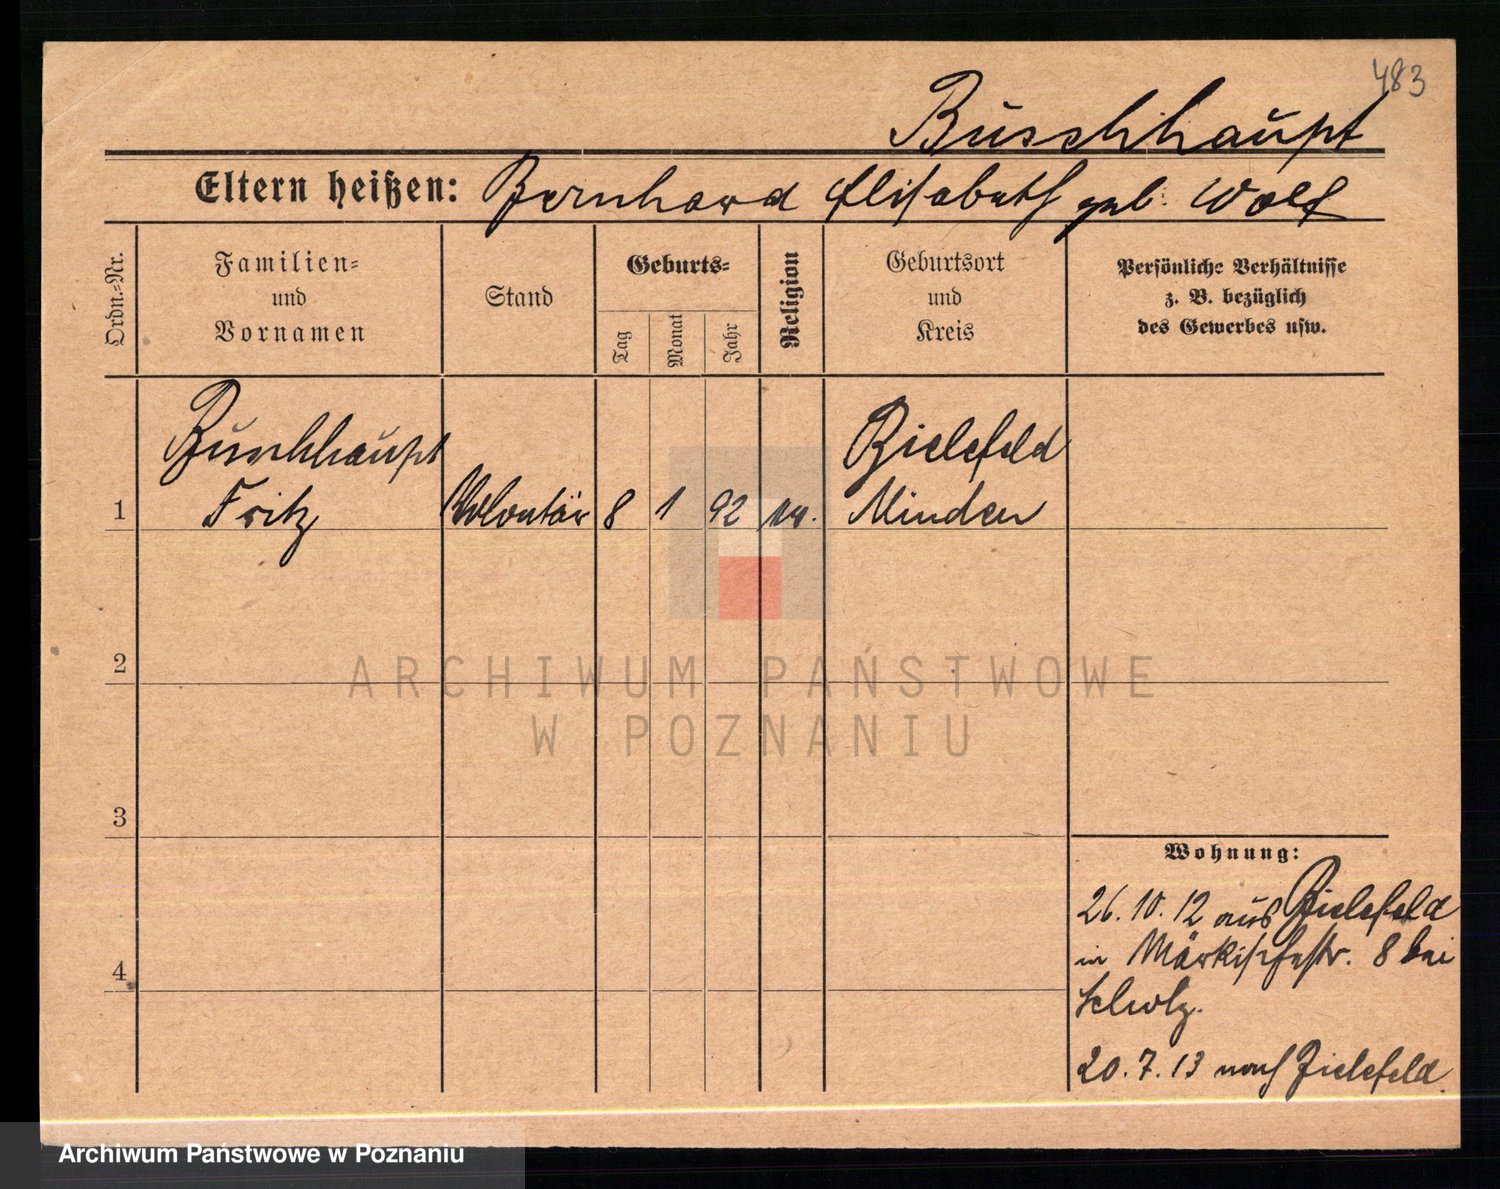 483
Buschhaupt
Eltern heißen: Bernhard Elisabeth geb. Wolf
Ordn.-Nr.
Familien=
und
Vornamen
Stand
Geburts=
Tag
Monat
Jahr
Religion
Geburtsort
und
Kreis
Persönliche Verhältnisse
z. B. bezüglich
des Gewerbes usw.
Buschhaupt
Fritz
1
Volontär
8
1
92
ev.
Bielefeld
Minden
2
3
4
Wohnung:
26. 10. 12 aus Bielefeld
in Märkischestr. 8 bei
Scholz.
20. 7. 13 nach Bielefeld.
ARCHIWUM PAŃSTWOWE
W POZNANIU
Archiwum Państwowe w Poznaniu